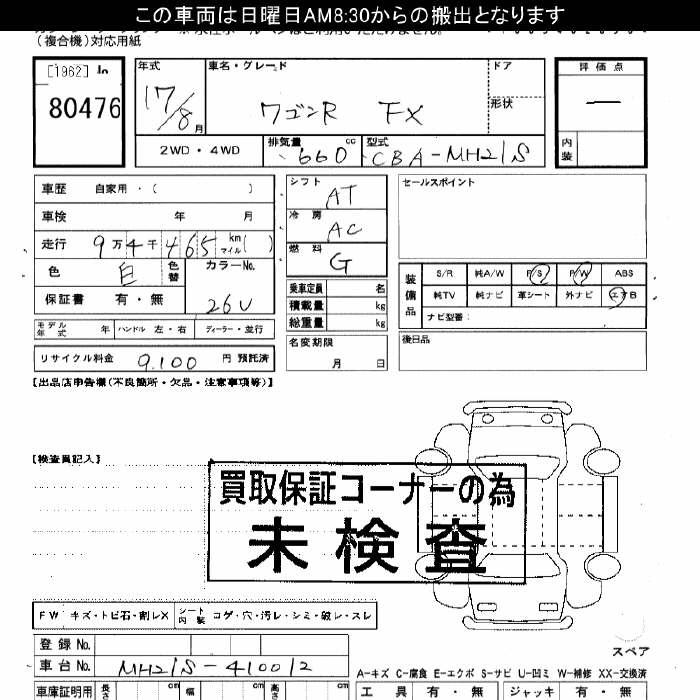 この車両は日曜日AM8:30からの搬出となります
(複合機)対応用紙
[1962]
80476
年式
17/8月
車名・グレード
ワゴンR FX
ドア
形状
評価点
内装
2WD・4WD
排気量
660 cc
型式
CBA-MH21S
車歴 自家用・(
車検 年 月
走行 9万4千465 km マイル( )
色 白 色替 カラーNo.
26U
保証書 有・無
モデル年式 年 ハンドル 左・右 ディーラー・並行
リサイクル料金 9,100 円 預託済
シフト AT
冷房 AC
燃料 G
乗車定員 名
積載量 kg
総重量 kg
名変期限
月 日
セールスポイント
装備品
S/R 純A/W P/S P/W ABS
純TV 純ナビ 革シート 外ナビ エアB
ナビ型番:
後日品
【出品店申告欄(不良箇所・欠品・注意事項等)】
【検査員記入】
買取保証コーナーの為
未検査
FW キズ・トビ石・割レX シート内装 コゲ・穴・汚レ・シミ・破レ・スレ
登録No.
車台No. MH21S-410012
スペア
A-キズ C-腐食 E-エクボ S-サビ U-凹ミ W-補修 XX-交換済
車庫証明用 長さ cm 幅 cm 高さ cm
工具 有・無 ジャッキ 有・無